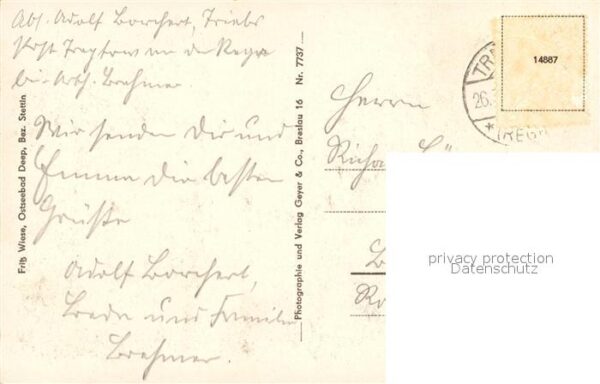 Abs. Adolf Borchert, Triebs
Post Treptow an der Rega
bei Arth. Brehmer.
Wir senden Dir und
Emma die besten
Grüße
Adolf Borchert,
und Familie
Brehmer.
Fritz Wiese, Ostseebad Deep, Bez. Stettin
Photographie und Verlag Geyer & Co., Breslau 16 Nr. 7737
Herrn
14887
TR
26.
* (REG
privacy protection
Datenschutz